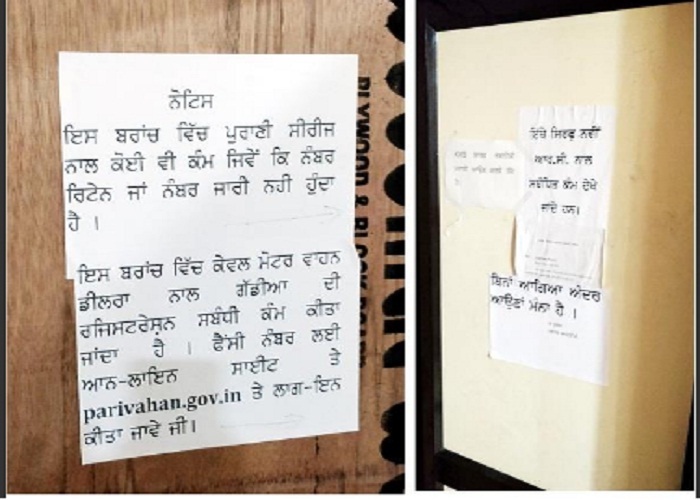 ਨੋਟਿਸ
ਇਸ ਬਰਾਂਚ ਵਿੱਚ ਪੁਰਾਣੀ ਸੀਰੀਜ
ਨਾਲ ਕੋਈ ਵੀ ਕੰਮ ਜਿਵੇਂ ਕਿ ਨੰਬਰ
ਰਿਟੇਨ ਜਾਂ ਨੰਬਰ ਜਾਰੀ ਨਹੀ ਹੁੰਦਾ
ਹੈ ।
ਇਸ ਬਰਾਂਚ ਵਿੱਚ ਕੇਵਲ ਮੋਟਰ ਵਾਹਨ
ਡੀਲਰਾ ਨਾਲ ਗੱਡੀਆ ਦੀ
ਰਜਿਸਟਰੇਸ਼ਨ ਸਬੰਧੀ ਕੰਮ ਕੀਤਾ
ਜਾਂਦਾ ਹੈ । ਫੈਂਸੀ ਨੰਬਰ ਲਈ
ਆਨ-ਲਾਇਨ ਸਾਈਟ ਤੇ
parivahan.gov.in ਤੇ ਲਾਗ-ਇਨ
ਕੀਤਾ ਜਾਵੇ ਜੀ।
PLYWOOD &
ਇੱਥੇ ਸਿਰਫ ਨਵੀਂ
ਆਰ.ਸੀ. ਨਾਲ
ਸਬੰਧਿਤ ਕੰਮ ਦੇਖੇ
ਜਾਂਦੇ ਹਨ।
ਬਿਨਾਂ ਆਗਿਆ ਅੰਦਰ
ਆਉਣਾਂ ਮੰਨਾ ਹੈ ।